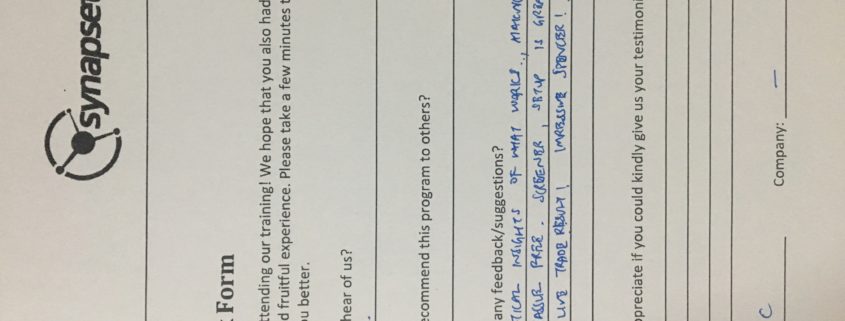 synapse
Form
ttending our training! We hope that you also had
d fruitful experience. Please take a few minutes t
ou better.
hear of us?
ecommend this program to others?
any feedback/suggestions?
TICAL INSIGHTS OF WHAT WORKS.,
FREE. SCREENER, SETUP IS GREA
LIVE TRADE RESULT! IMRESSIVE SPENCER!
ppreciate if you could kindly give us your testimoni
C Company: —